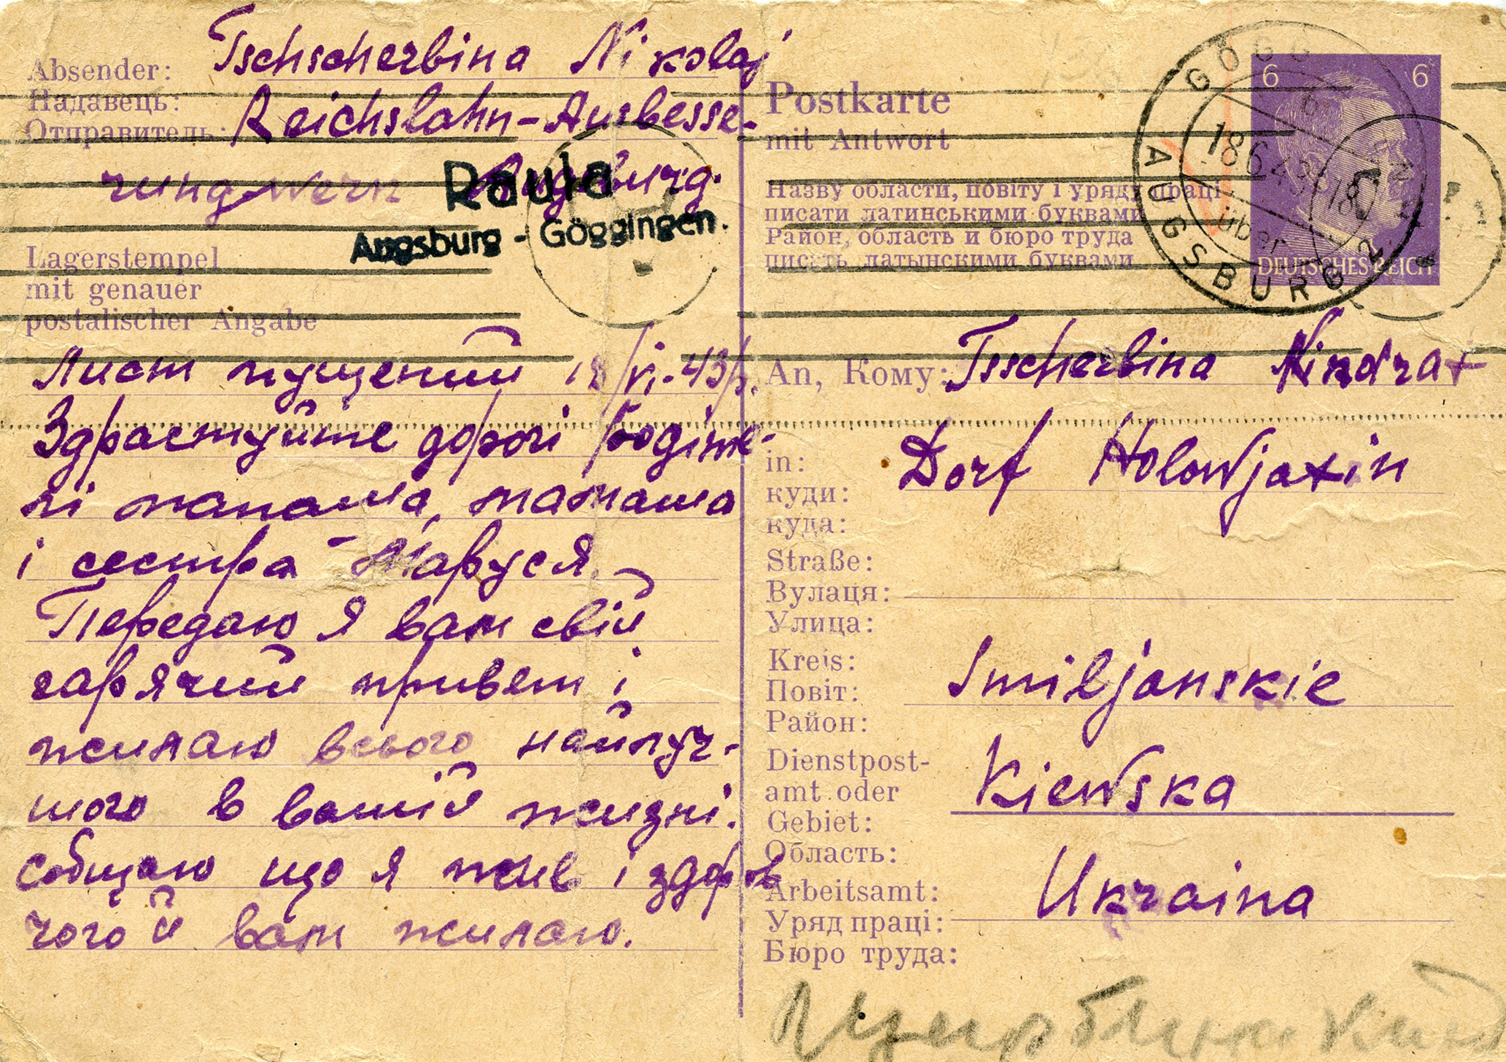 Absender: Tschscherbina Nikolaj
Надавець:
Отправитель: Reichsbahn-Ausbesse-
rungswerk Augsburg.
Raula
Augsburg - Göggingen.
Lagerstempel
mit genauer
postalischer Angabe
Лист пущений 18/VI-43р.
Здраствуйте дорогі родіте-
лі папаша, мамаша
і сестра - Маруся.
Передаю я вам свій
гарячий привет і
желаю всього найлуч-
шого в вашій жизні.
Собщаю що я жив і здоров
чого й вам желаю.
Postkarte
mit Antwort
Назву области, повіту і уряду праці
писати латинськими буквами
Район, область и бюро труда
писать латынскими буквами
6 6
DEUTSCHES REICH
GÖGG
b
18.6.43-18
über
AUGSBURG 2
An, Кому: Tsscherbina
in: Dorf Holowjatin
куди:
куда:
Straße:
Вулаця:
Улица:
Kreis: Smiljanskie
Повіт:
Район:
Dienstpost-
amt oder Kiewska
Gebiet:
Область:
Arbeitsamt: Ukraina
Уряд праці:
Бюро труда: